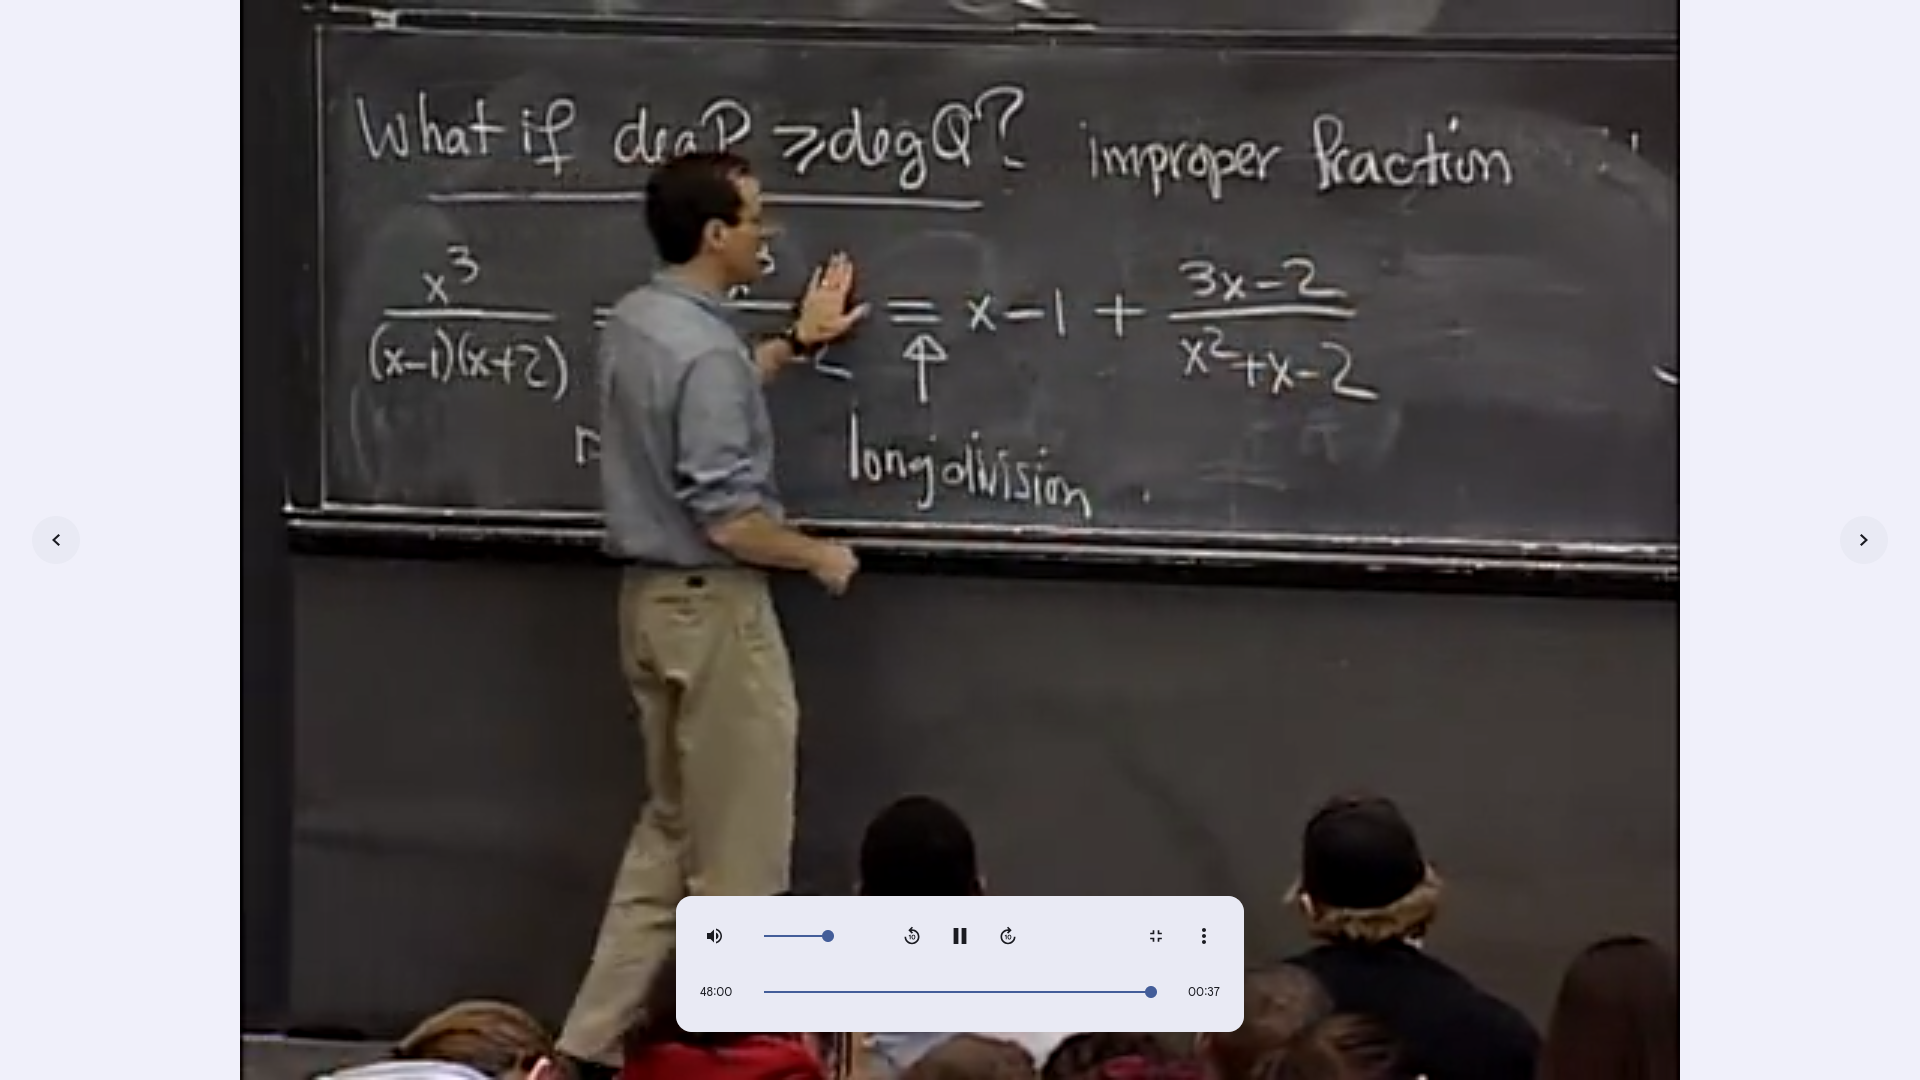 What if deg P ≥ deg Q? improper fraction
x³/(x-1)(x+2) = = x-1 + 3x-2/x²+x-2
long division
48:00 00:37